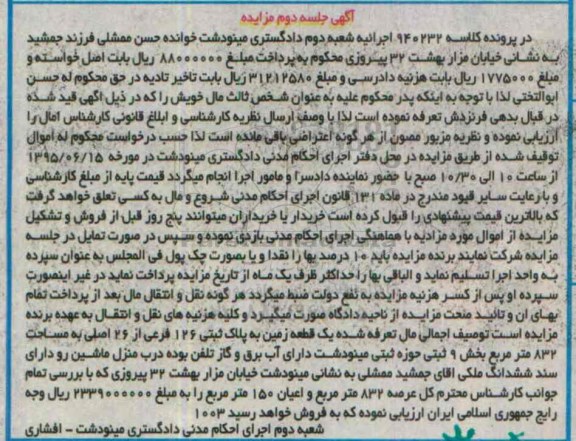 آگهی جلسه دوم مزایده
در پرونده کلاسه ۹۴۰۲۳۲ اجرائیه شعبه دوم دادگستری مینودشت خوانده حسن ممشلی فرزند جمشید
به نشانی خیابان مزار بهشت ۳۲ پیروزی محکوم به پرداخت مبلغ ۸۸۰۰۰۰۰۰ ریال بابت اصل خواسته و
مبلغ ۱۷۷۵۰۰۰ ریال بابت هزینه دادرسی و مبلغ ۳۱۲۱۲۵۸۰ ریال بابت تاخیر تادیه در حق محکوم له حسن
ابوالفتحی لذا با توجه به اینکه پدر محکوم علیه به عنوان شخص ثالث مال خویش را که در ذیل اگهی قید شده
در قبال بدهی فرزندش تعرفه نموده است لذا با وصف ارسال نظریه کارشناسی و ابلاغ قانونی کارشناس امال را
ارزیابی نموده و نظریه مزبور مصون از هر گونه اعتراضی باقی مانده است لذا حسب درخواست محکوم له اموال
توقیف شده از طریق مزایده در محل دفتر اجرای احکام مدنی دادگستری مینودشت در مورخه ۱۳۹۵/۰۶/۱۵
از ساعت ۱۰ الی ۱۰/۳۰ صبح با حضور نماینده دادسرا و مامور اجرا انجام میگردد قیمت پایه از مبلغ کارشناسی
و با رعایت سایر قیود مندرج در ماده ۱۳۱ قانون اجرای احکام مدنی شروع و مال به کسی تعلق خواهد گرفت
که بالاترین قیمت پیشنهادی را قبول کرده است خریدار یا خریداران میتوانند پنج روز قبل از فروش و تشکیل
مزایده از اموال مورد مزادیه با هماهنگی اجرای احکام مدنی بازدی نموده و سپس در صورت تمایل در جلسه
مزایده شرکت نمایند برنده مزایده باید ۱۰ درصد بها را نقدا و یا بصورت چک پول فی المجلس به عنوان سپرده
به واحد اجرا تسلیم نماید و الباقی بها را حداکثر ظرف یک ماه از تاریخ مزایده پرداخت نماید در غیر اینصورت
سپرده او پس از کسر هزینه مزایده به نفع دولت ضبط میگردد هر گونه نقل و انتقال مال بعد از پرداخت تمام
بهای ان و تائید صحت مزایده از ناحیه دادگاه صورت میگیرد و کلیه هزینه های نقل و انتقال به عهده برنده
مزایده است توصیف اجمالی مال تعرفه شده یک قطعه زمین به پلاک ثبتی ۱۲۶ فرعی از ۲۶ اصلی به مساحت
۸۳۲ متر مربع بخش ۹ ثبتی حوزه ثبتی مینودشت دارای آب برق و گاز تلفن بوده درب منزل ماشین رو دارای
سند ششدانگ ملکی اقای جمشید ممشلی به نشانی مینودشت خیابان مزار بهشت ۳۲ پیروزی که با بررسی تمام
جوانب کارشناس محترم کل عرصه ۸۳۲ متر مربع و اعیان ۱۵۰ متر مربع را به مبلغ ۲۳۳۹۰۰۰۰۰۰ ریال وجه
رایج جمهوری اسلامی ایران ارزیابی نموده که به فروش خواهد رسید ۱۰۰۳
شعبه دوم اجرای احکام مدنی دادگستری مینودشت - افشاری